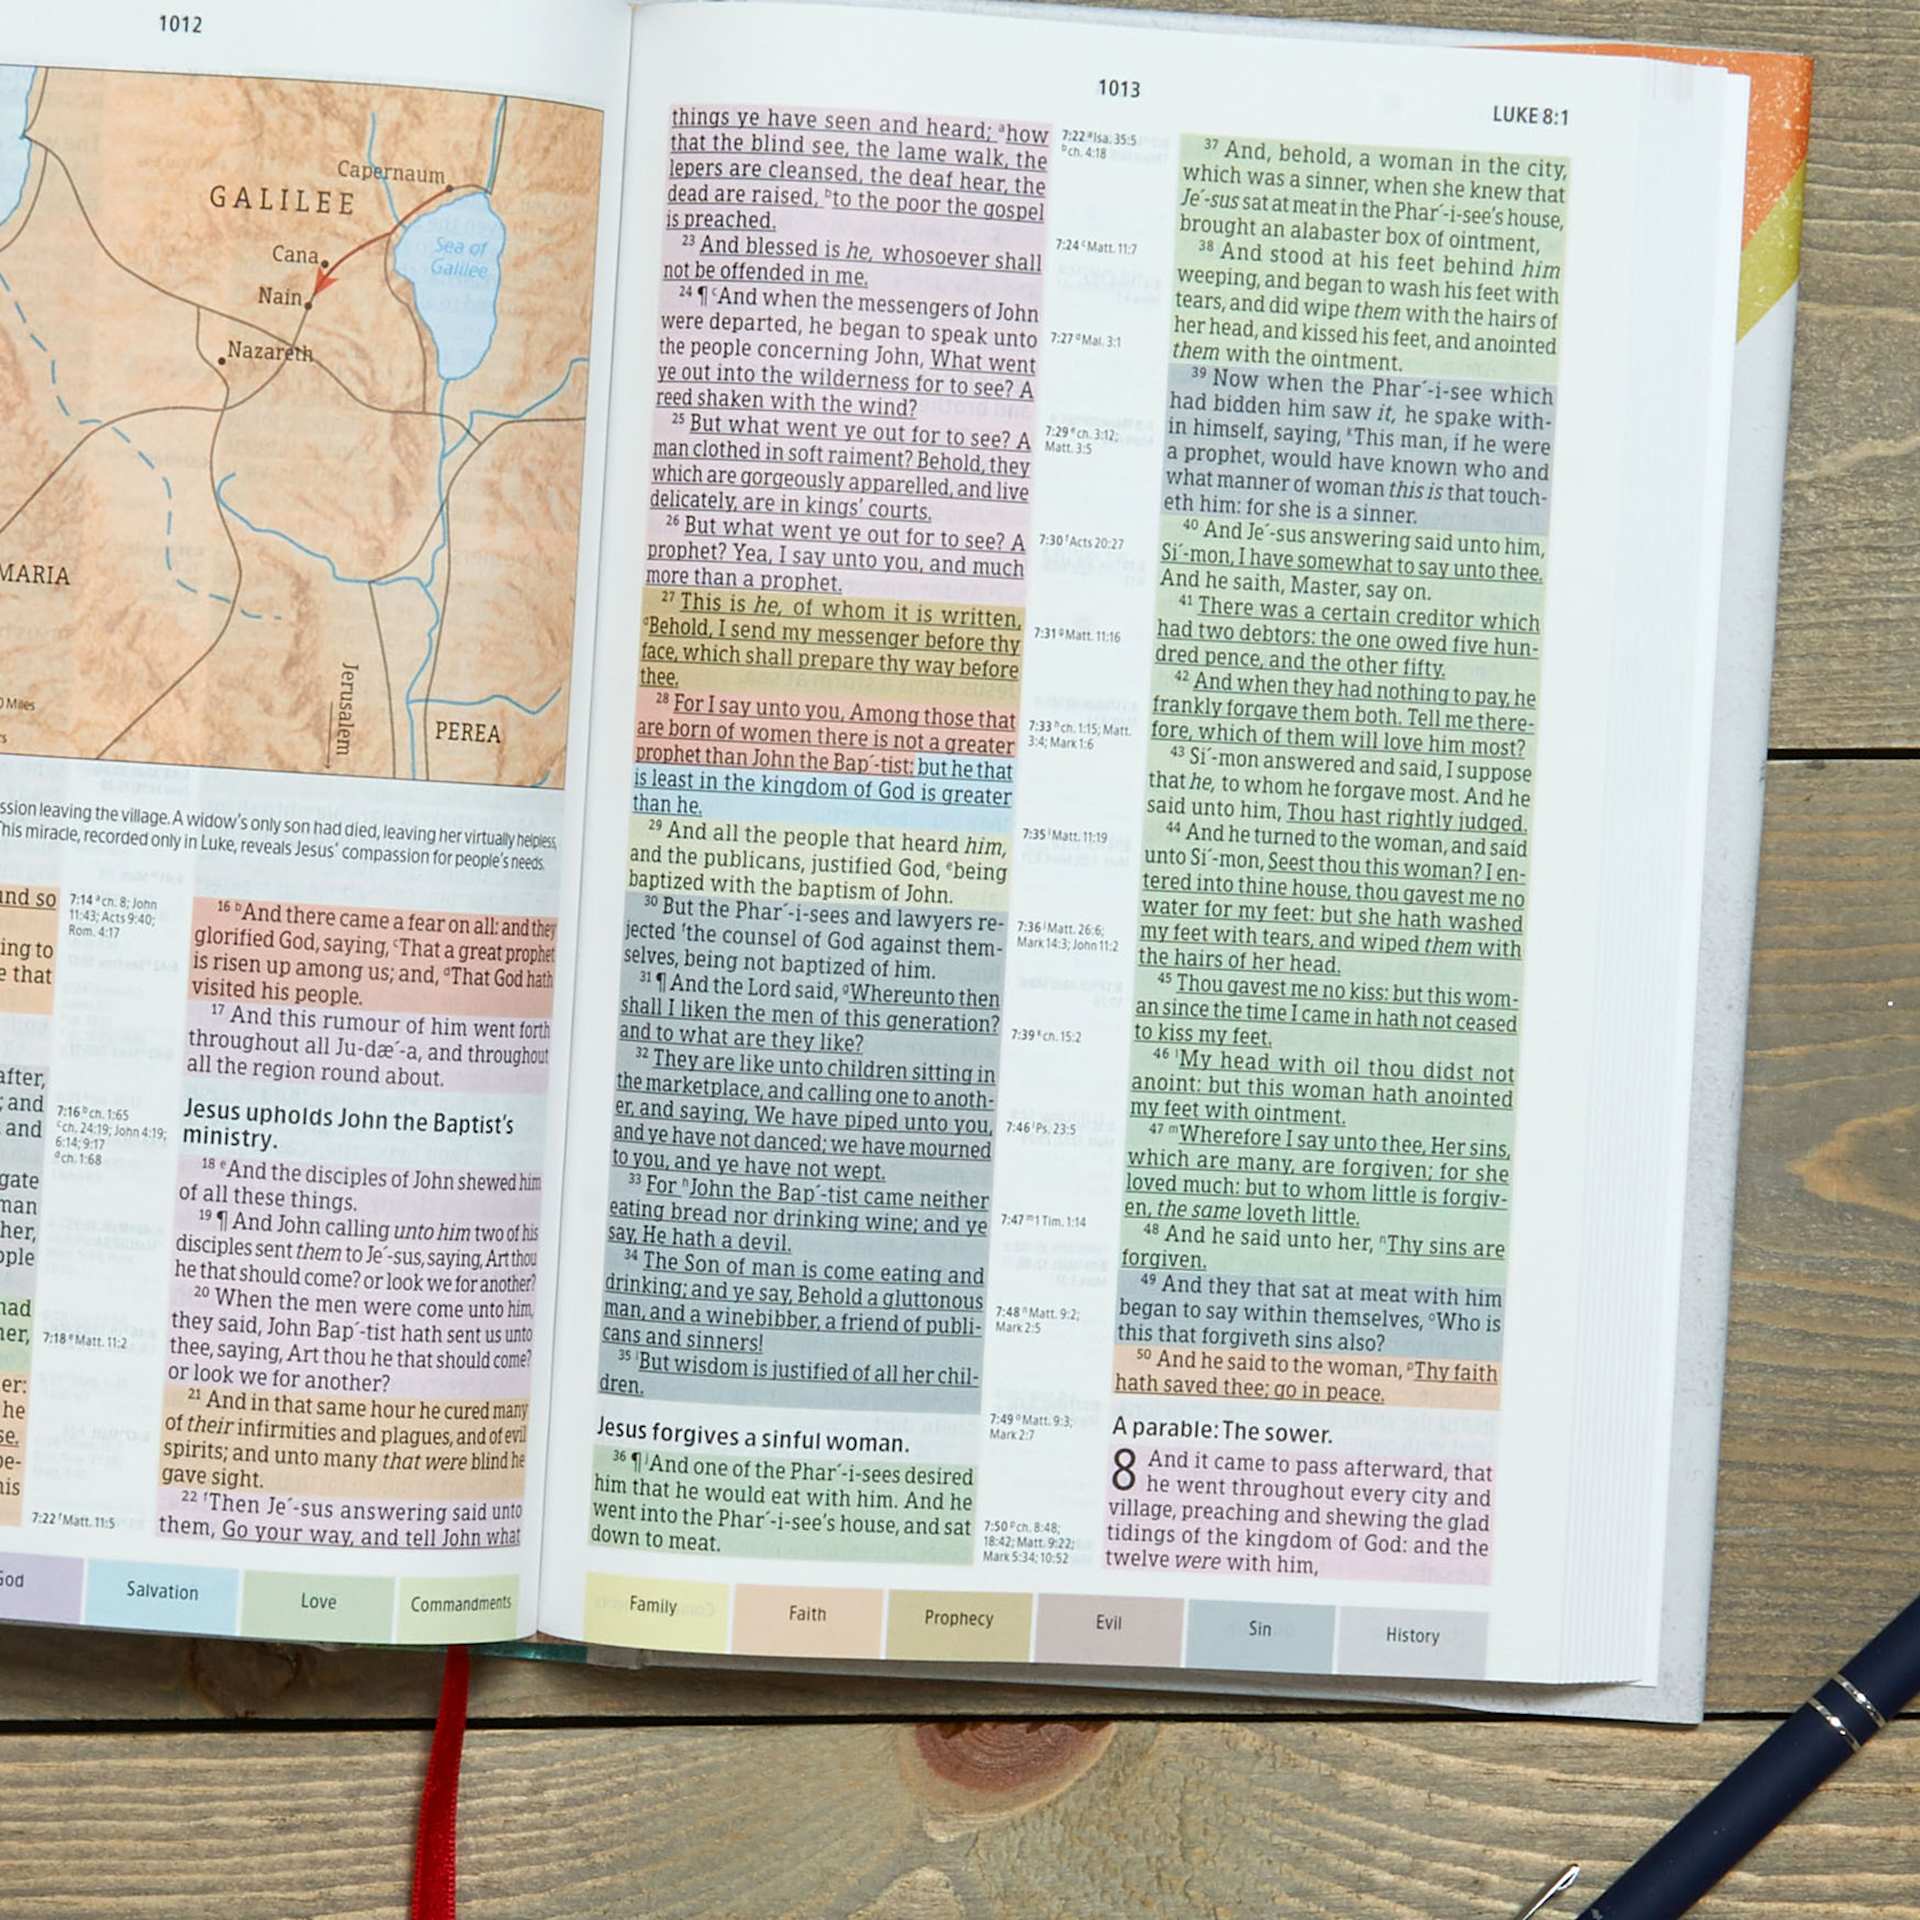 1012
GALILEE
Capernaum
Sea of
Galilee
Cana
Nain
Nazareth
MARIA
Jerusalem
PEREA
0 Miles
ssion leaving the village. A widow's only son had died, leaving her virtually helpless.
This miracle, recorded only in Luke, reveals Jesus' compassion for people's needs.
and so
ing to
e that
after,
; and
and
gate
man
her,
ople
had
her,
er:
he
se.
be-
his
7:14 ᵃch. 8; John
11:43; Acts 9:40;
Rom. 4:17
7:16 ᵇch. 1:65
ᶜch. 24:19; John 4:19;
6:14; 9:17
ᵈch. 1:68
7:18 ᵉMatt. 11:2
7:22 ᶠMatt. 11:5
16 ᵇAnd there came a fear on all: and they
glorified God, saying, ᶜThat a great prophet
is risen up among us; and, ᵈThat God hath
visited his people.
17 And this rumour of him went forth
throughout all Ju-dæ´-a, and throughout
all the region round about.
Jesus upholds John the Baptist's
ministry.
18 ᵉAnd the disciples of John shewed him
of all these things.
19 ¶ And John calling unto him two of his
disciples sent them to Je´-sus, saying, Art thou
he that should come? or look we for another?
20 When the men were come unto him,
they said, John Bap´-tist hath sent us unto
thee, saying, Art thou he that should come?
or look we for another?
21 And in that same hour he cured many
of their infirmities and plagues, and of evil
spirits; and unto many that were blind he
gave sight.
22 ᶠThen Je´-sus answering said unto
them, Go your way, and tell John what
God
Salvation
Love
Commandments
1013
LUKE 8:1
things ye have seen and heard; ᵃhow
that the blind see, the lame walk, the
lepers are cleansed, the deaf hear, the
dead are raised, ᵇto the poor the gospel
is preached.
23 And blessed is he, whosoever shall
not be offended in me.
24 ¶ ᶜAnd when the messengers of John
were departed, he began to speak unto
the people concerning John, What went
ye out into the wilderness for to see? A
reed shaken with the wind?
25 But what went ye out for to see? A
man clothed in soft raiment? Behold, they
which are gorgeously apparelled, and live
delicately, are in kings' courts.
26 But what went ye out for to see? A
prophet? Yea, I say unto you, and much
more than a prophet.
27 This is he, of whom it is written,
ᵈBehold, I send my messenger before thy
face, which shall prepare thy way before
thee.
28 For I say unto you, Among those that
are born of women there is not a greater
prophet than John the Bap´-tist: but he that
is least in the kingdom of God is greater
than he.
29 And all the people that heard him,
and the publicans, justified God, ᵉbeing
baptized with the baptism of John.
30 But the Phar´-i-sees and lawyers re-
jected ᶠthe counsel of God against them-
selves, being not baptized of him.
31 ¶ And the Lord said, ᵍWhereunto then
shall I liken the men of this generation?
and to what are they like?
32 They are like unto children sitting in
the marketplace, and calling one to anoth-
er, and saying, We have piped unto you,
and ye have not danced; we have mourned
to you, and ye have not wept.
33 For ʰJohn the Bap´-tist came neither
eating bread nor drinking wine; and ye
say, He hath a devil.
34 The Son of man is come eating and
drinking; and ye say, Behold a gluttonous
man, and a winebibber, a friend of publi-
cans and sinners!
35 ⁱBut wisdom is justified of all her chil-
dren.
Jesus forgives a sinful woman.
36 ¶ ʲAnd one of the Phar´-i-sees desired
him that he would eat with him. And he
went into the Phar´-i-see's house, and sat
down to meat.
7:22 ᵃIsa. 35:5
ᵇch. 4:18
7:24 ᶜMatt. 11:7
7:27 ᵈMal. 3:1
7:29 ᵉch. 3:12;
Matt. 3:5
7:30 ᶠActs 20:27
7:31 ᵍMatt. 11:16
7:33 ʰch. 1:15; Matt.
3:4; Mark 1:6
7:35 ⁱMatt. 11:19
7:36 ʲMatt. 26:6;
Mark 14:3; John 11:2
7:39 ᵏch. 15:2
7:46 ˡPs. 23:5
7:47 ᵐ1 Tim. 1:14
7:48 ⁿMatt. 9:2;
Mark 2:5
7:49 ᵒMatt. 9:3;
Mark 2:7
7:50 ᵖch. 8:48;
18:42; Matt. 9:22;
Mark 5:34; 10:52
37 And, behold, a woman in the city,
which was a sinner, when she knew that
Je´-sus sat at meat in the Phar´-i-see's house,
brought an alabaster box of ointment,
38 And stood at his feet behind him
weeping, and began to wash his feet with
tears, and did wipe them with the hairs of
her head, and kissed his feet, and anointed
them with the ointment.
39 Now when the Phar´-i-see which
had bidden him saw it, he spake with-
in himself, saying, ᵏThis man, if he were
a prophet, would have known who and
what manner of woman this is that touch-
eth him: for she is a sinner.
40 And Je´-sus answering said unto him,
Si´-mon, I have somewhat to say unto thee.
And he saith, Master, say on.
41 There was a certain creditor which
had two debtors: the one owed five hun-
dred pence, and the other fifty.
42 And when they had nothing to pay, he
frankly forgave them both. Tell me there-
fore, which of them will love him most?
43 Si´-mon answered and said, I suppose
that he, to whom he forgave most. And he
said unto him, Thou hast rightly judged.
44 And he turned to the woman, and said
unto Si´-mon, Seest thou this woman? I en-
tered into thine house, thou gavest me no
water for my feet: but she hath washed
my feet with tears, and wiped them with
the hairs of her head.
45 Thou gavest me no kiss: but this wom-
an since the time I came in hath not ceased
to kiss my feet.
46 ˡMy head with oil thou didst not
anoint: but this woman hath anointed
my feet with ointment.
47 ᵐWherefore I say unto thee, Her sins,
which are many, are forgiven; for she
loved much: but to whom little is forgiv-
en, the same loveth little.
48 And he said unto her, ⁿThy sins are
forgiven.
49 And they that sat at meat with him
began to say within themselves, ᵒWho is
this that forgiveth sins also?
50 And he said to the woman, ᵖThy faith
hath saved thee; go in peace.
A parable: The sower.
8 And it came to pass afterward, that
he went throughout every city and
village, preaching and shewing the glad
tidings of the kingdom of God: and the
twelve were with him,
Family
Faith
Prophecy
Evil
Sin
History